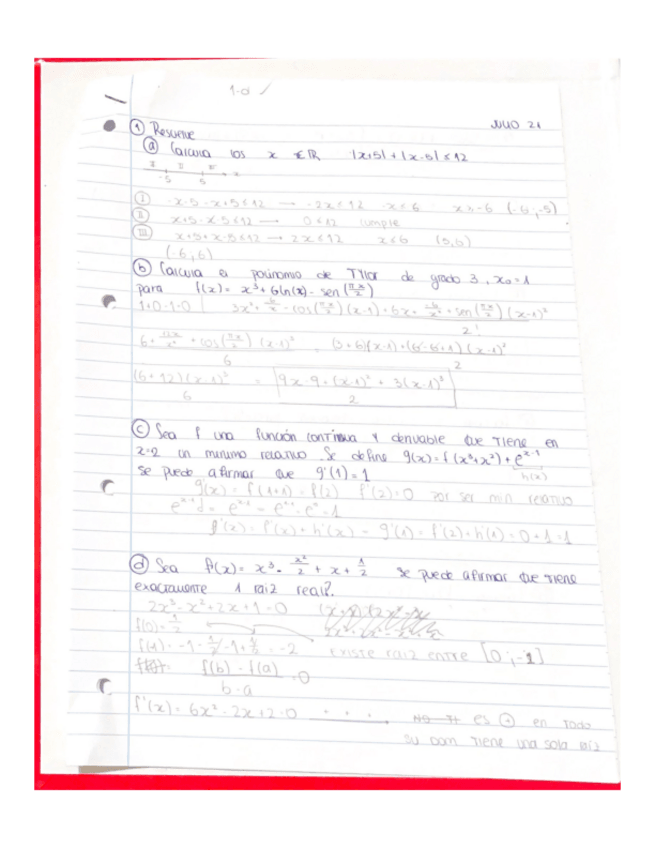 1-d ✓
JULIO 21
① Resuelve
ⓐ Calcula los x ∈ ℝ |x+5| + |x-5| ≤ 12
I II III
-5 5 x
Ⅰ -x-5-x+5≤12 → -2x≤12 -x≤6 x≥-6 (-6,-5)
Ⅱ x+5-x+5≤12 → 0≤12 cumple
Ⅲ x+5+x-5≤12 → 2x≤12 x≤6 (5,6)
(-6,6)
ⓑ Calcula el polinomio de de grado 3, x₀=1
para f(x)= x³+6ln(x)-sen(πx/2)
1+0-1=0
2!
6
(6+12)(x-1)³ / 6 = 9x-9+(x-1)²+3(x-1)³ / 2
ⓒ Sea f una función continua y derivable que tiene en
x=2 un mínimo relativo. Se define g(x)=f(x³+x²)+e^(x-1)
h(x)
se puede afirmar que g'(1)=1
g(x) = f(1+1) = f(2) f'(2)=0 por ser min relativo
g'(x) = f'(x)+h'(x) = g'(1) = f'(2)+h(1) = 0+1=1
ⓓ Sea f(x)= x³ - x²/2 + x + 1/2 se puede afirmar que tiene
exactamente 1 raiz real?.
2x³-x²+2x+1=0
f(0)=1/2
existe raiz entre [0,-1]
f(b)-f(a) / b-a = 0
f'(x)= 6x²-2x+2=0 es ⊕ en todo
su dom. tiene una sola raiz